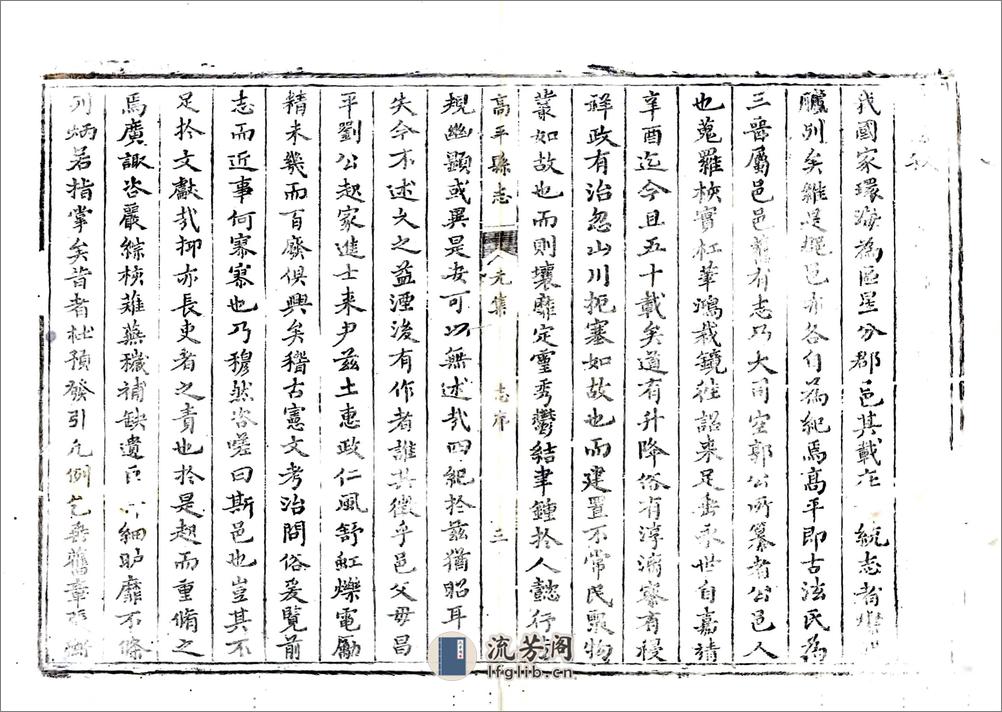 我國家環瀛為區星分郡邑其載在一統志者
臚列矣雖是埏邑亦各自為紀焉高平即古泫氏為
三晉屬邑邑舊有志乃大司空郭公所纂者公邑人
也蒐羅核實杠華鴻裁鏡往詔来足垂永世自嘉靖
辛酉迄今且五十載矣道有升降俗有淳漓寮有祲
祥政有治忽山川扼塞如故也而建置不常民聚物
叢如故也而則壤靡定靈秀鬱結聿鍾扵人懿行
高平縣志
元集
志序
三
規幽顯或異是安可以無述哉四紀扵兹猶昭耳
失今不述久之益湮後有作者誰其徵乎邑父母昌
平劉公起家進士来尹兹土惠政仁風舒虹爍電勵
精未幾而百廢俱興矣稽古憲文考治問俗爰覽前
志而近事何寥寥也乃穆然咨嗟曰斯邑也豈其不
足扵文獻哉抑亦長吏者之責也扵是趣而重脩之
焉廣諏咨嚴綜核薙蕪穢補缺遺巨細臚靡不條
列炳若指掌矣昔者杜預發引凡例乞垂舊章
流芳阁
lfglib.cn